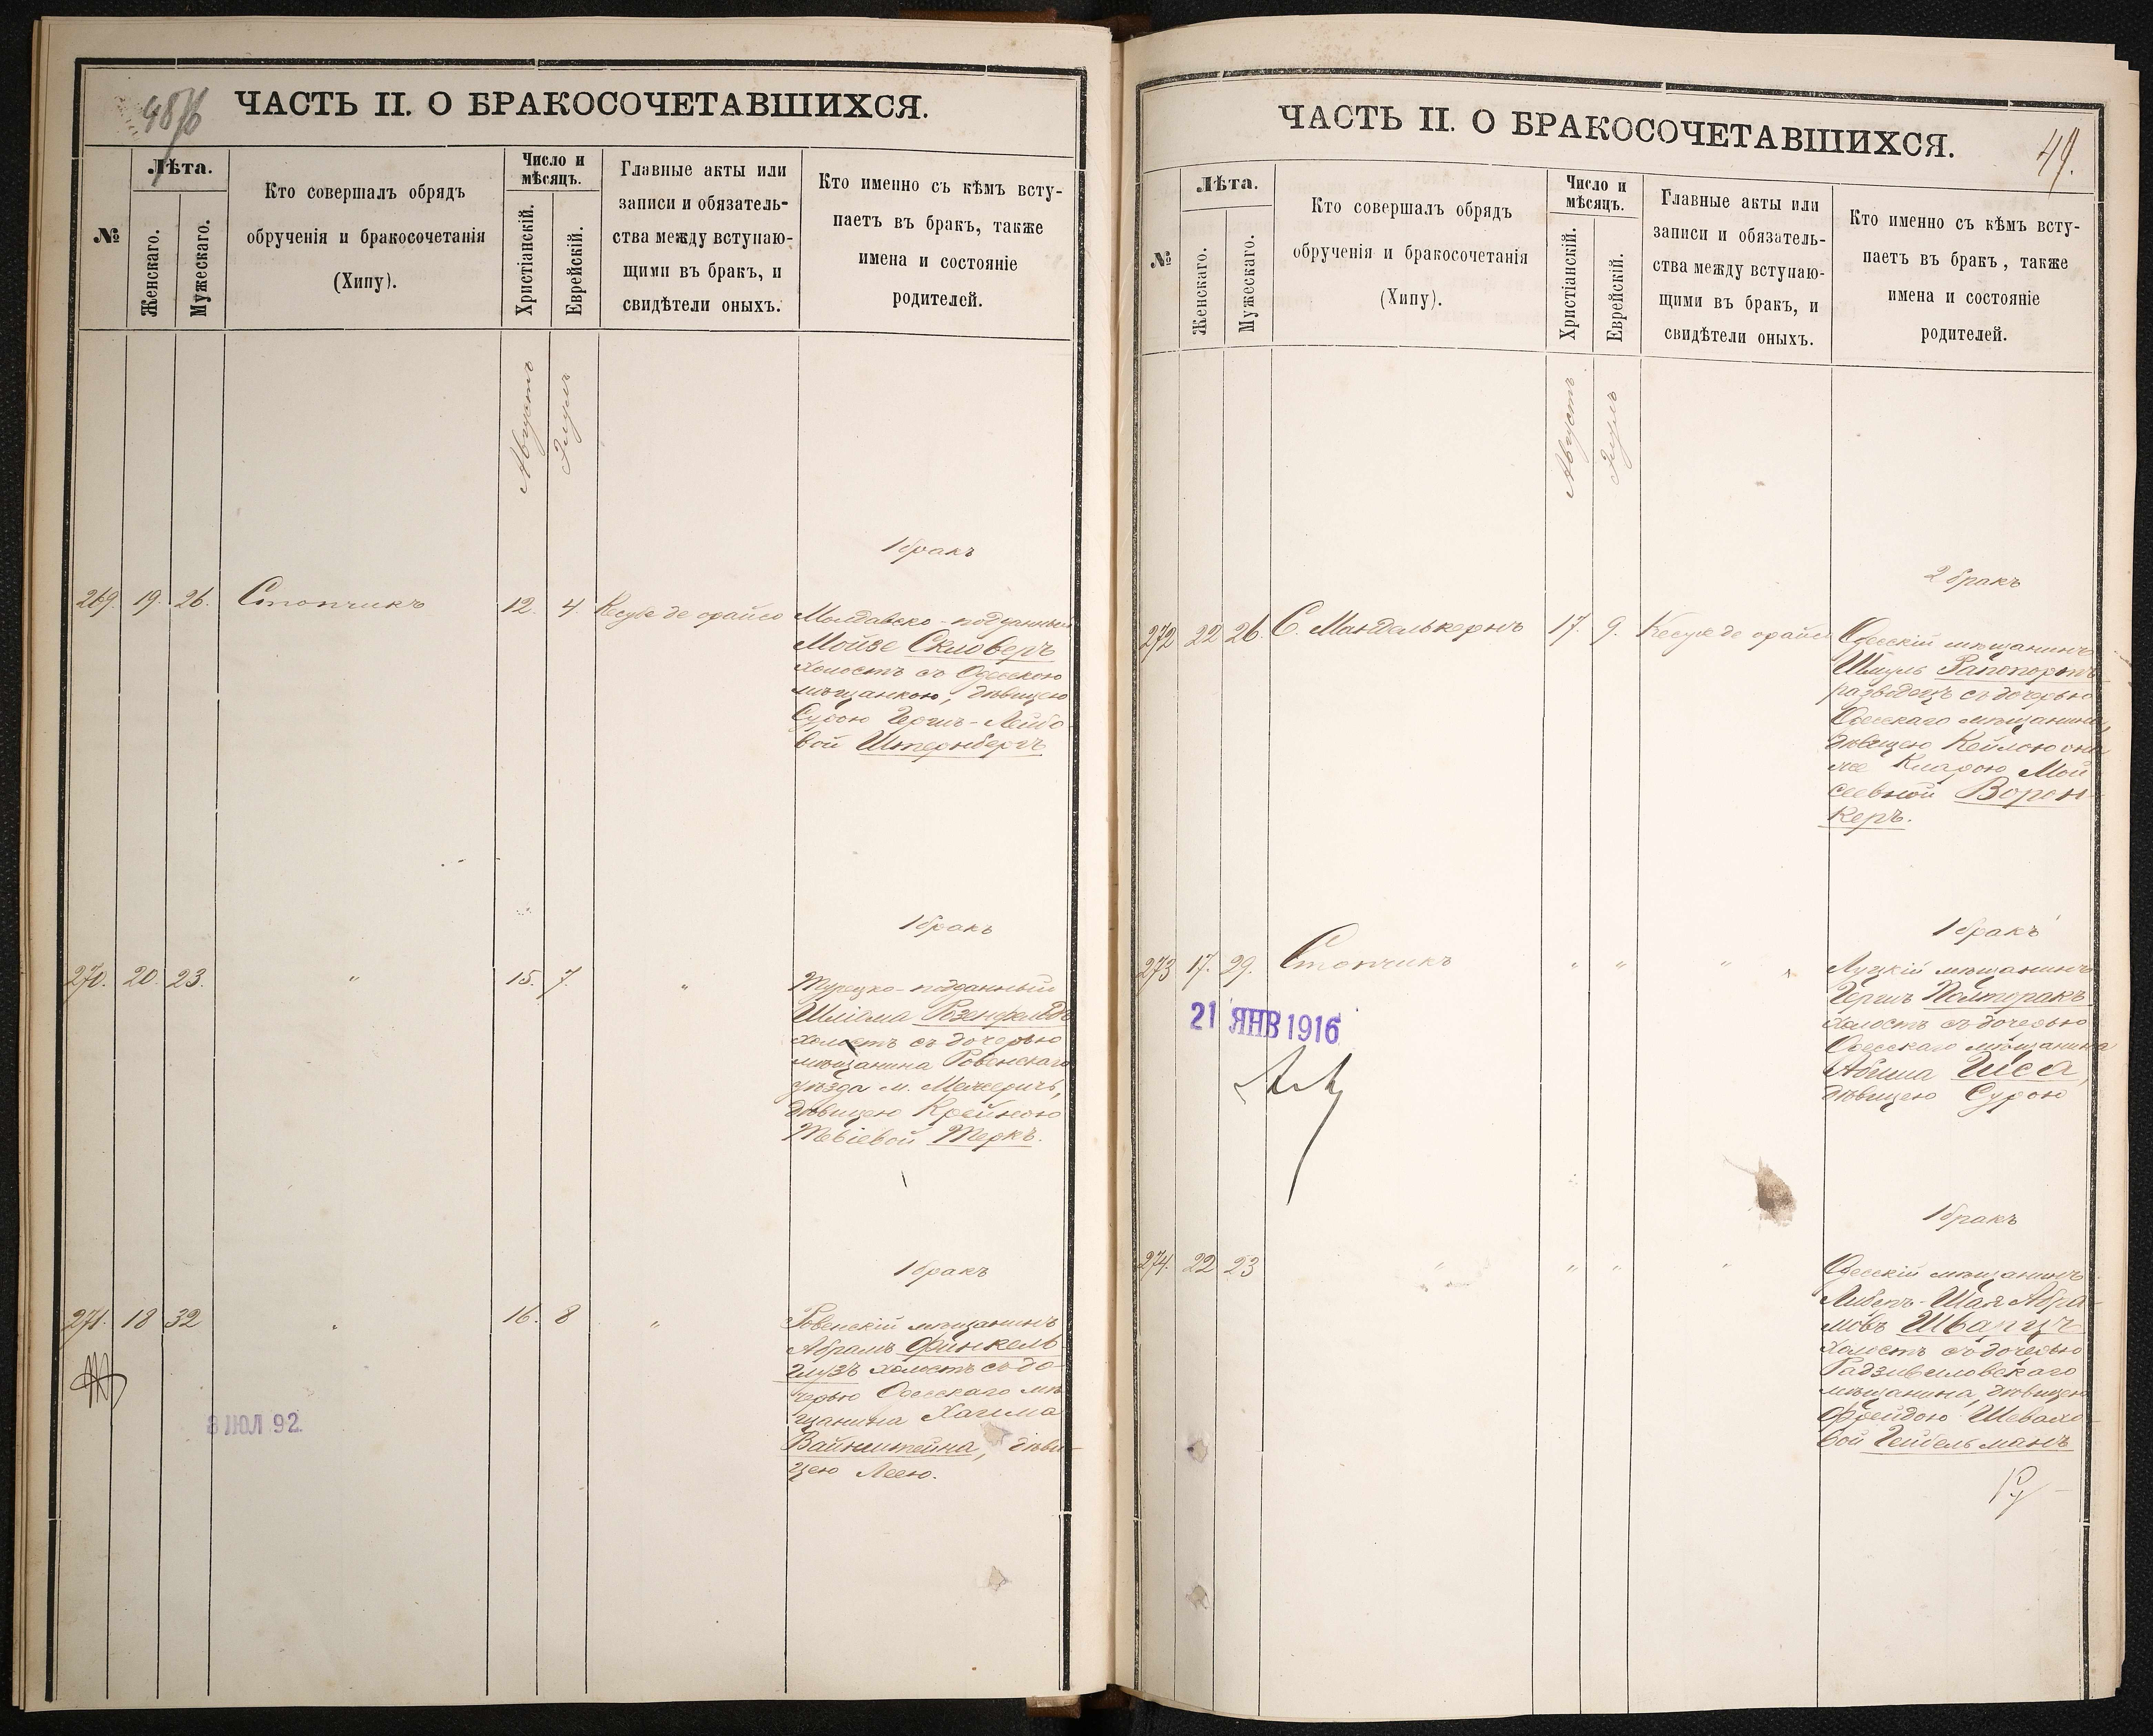 ЧАСТЬ II. О БРАКОСОЧЕТАВШИХСЯ.
№
Лѣта.
Женскаго.
Мужескаго.
Кто совершалъ обрядъ
обрученія и бракосочетанія
(Хипу).
Число и
мѣсяцъ.
Христіанскій.
Еврейскій.
Главные акты или
записи и обязатель-
ства между вступаю-
щими въ бракъ, и
свидѣтели оныхъ.
Кто именно съ кѣмъ всту-
паетъ въ бракъ, также
имена и состояніе
родителей.
Августъ
Элулъ
1 бракъ
269. 19. 26. Стопчикъ 12. 4. Кесубе де орайсо
Молдавско-подданный
Мойзе Скловеръ
холостъ съ Одесскою
мѣщанкою, дѣвицею
Сурою Герш-Лейбо-
вой Штернбергъ
1 бракъ
270. 20. 23. " 15. 7. "
Турецко-подданный
Шліома Розенфельдъ
холостъ съ дочерью
мѣщанина Ровенскаго
уѣзда м. Межеричъ,
дѣвицею Крейною
Тевіевой Теркъ.
1 бракъ
271. 18 32 " 16. 8 "
Ровенскій мѣщанинъ
Абрамъ Финкель-
глузъ холостъ съ до-
черью Одесскаго мѣ-
щанина Хаима
Вайнштейна, дѣви-
цею Леею.
8 ІЮЛ 92
ЧАСТЬ II. О БРАКОСОЧЕТАВШИХСЯ.
49.
№
Лѣта.
Женскаго.
Мужескаго.
Кто совершалъ обрядъ
обрученія и бракосочетанія
(Хипу).
Число и
мѣсяцъ.
Христіанскій.
Еврейскій.
Главные акты или
записи и обязатель-
ства между вступаю-
щими въ бракъ, и
свидѣтели оныхъ.
Кто именно съ кѣмъ всту-
паетъ въ бракъ, также
имена и состояніе
родителей.
Августъ
Элулъ
2 бракъ
272 22 26. С. Мандалькернъ 17. 9. Кесубе де орайсо
Одесскій мѣщанинъ
Шмуль Рапопортъ
разводецъ съ дочерью
Одесскаго мѣщанина,
дѣвицею Кейлою она
же Кларою Мой-
сеевной Ворон-
керъ.
1 бракъ
273 17. 29. Стопчикъ " " "
Луцкій мѣщанинъ
Гершъ Полторакъ
холостъ съ дочерью
Одесскаго мѣщанина
Абеша Гиса,
дѣвицею Сурою
21 ЯНВ 1916
1 бракъ
274. 22 23 " " " "
Одесскій мѣщанинъ
Либеръ-Шая Абра-
мовъ Шварцъ
холостъ съ дочерью
Радзивиловскаго
мѣщанина, дѣвицею
Фрейдою Шевахо-
вой Гейбельманъ